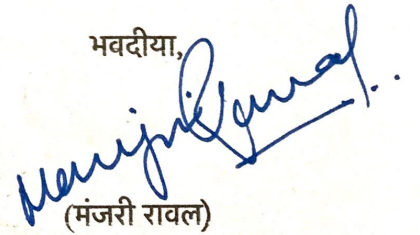 भवदीया,
Manjri Rawal
(मंजरी रावल)